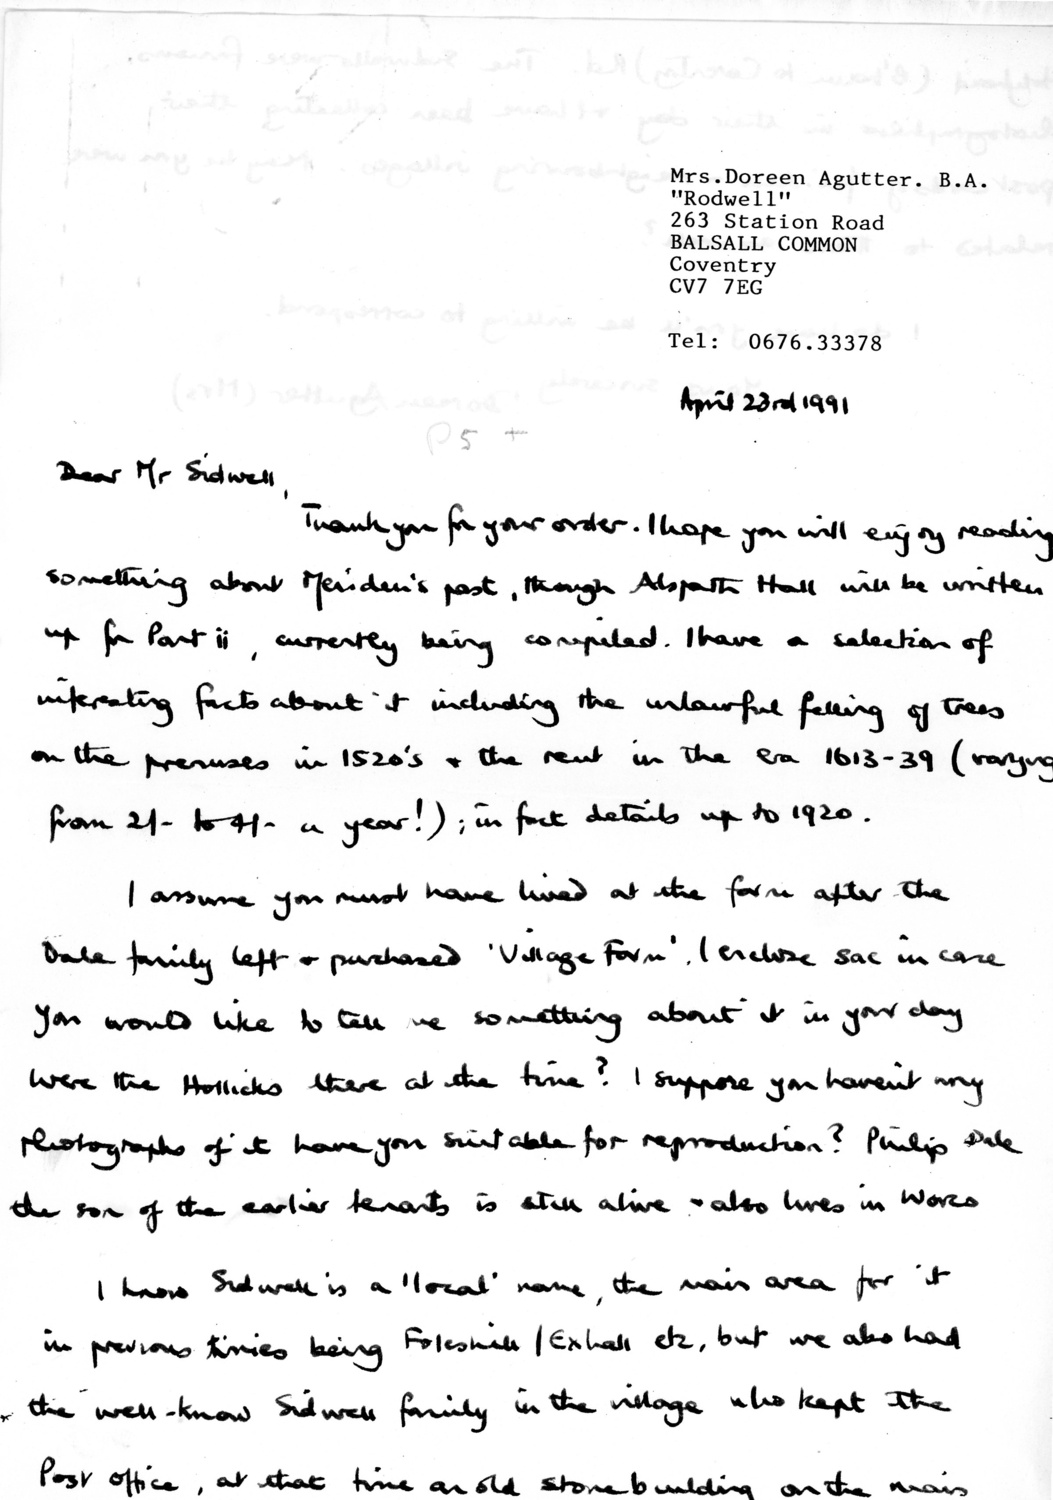 Mrs.Doreen Agutter. B.A.
"Rodwell"
263 Station Road
BALSALL COMMON
Coventry
CV7 7EG
Tel: 0676.33378
April 23rd 1991
Dear Mr Sidwell,
Thank you for your order. I hope you will enjoy reading
something about Meriden's past, though Alspath Hall will be written
up for Part ii, currently being compiled. I have a selection of
interesting facts about it including the unlawful felling of trees
on the premises in 1520's + the rent in the era 1613-39 (varying
from 2/- to 4/- a year!); in fact details up to 1920.
I assume you must have lived at the farm after the
Dale family left + purchased 'Village Farm'. I enclose sae in case
you would like to tell me something about it in your day
Were the Hollicks there at the time? I suppose you haven't any
photographs of it have you suitable for reproduction? Philip Dale
the son of the earlier tenants is still alive + also lives in Worcs
I know Sidwell is a 'local' name, the main area for it
in previous times being Foleshill / Exhall etc, but we also had
the well-know Sidwell family in the village who kept the
Post Office, at that time an old stone building on the main